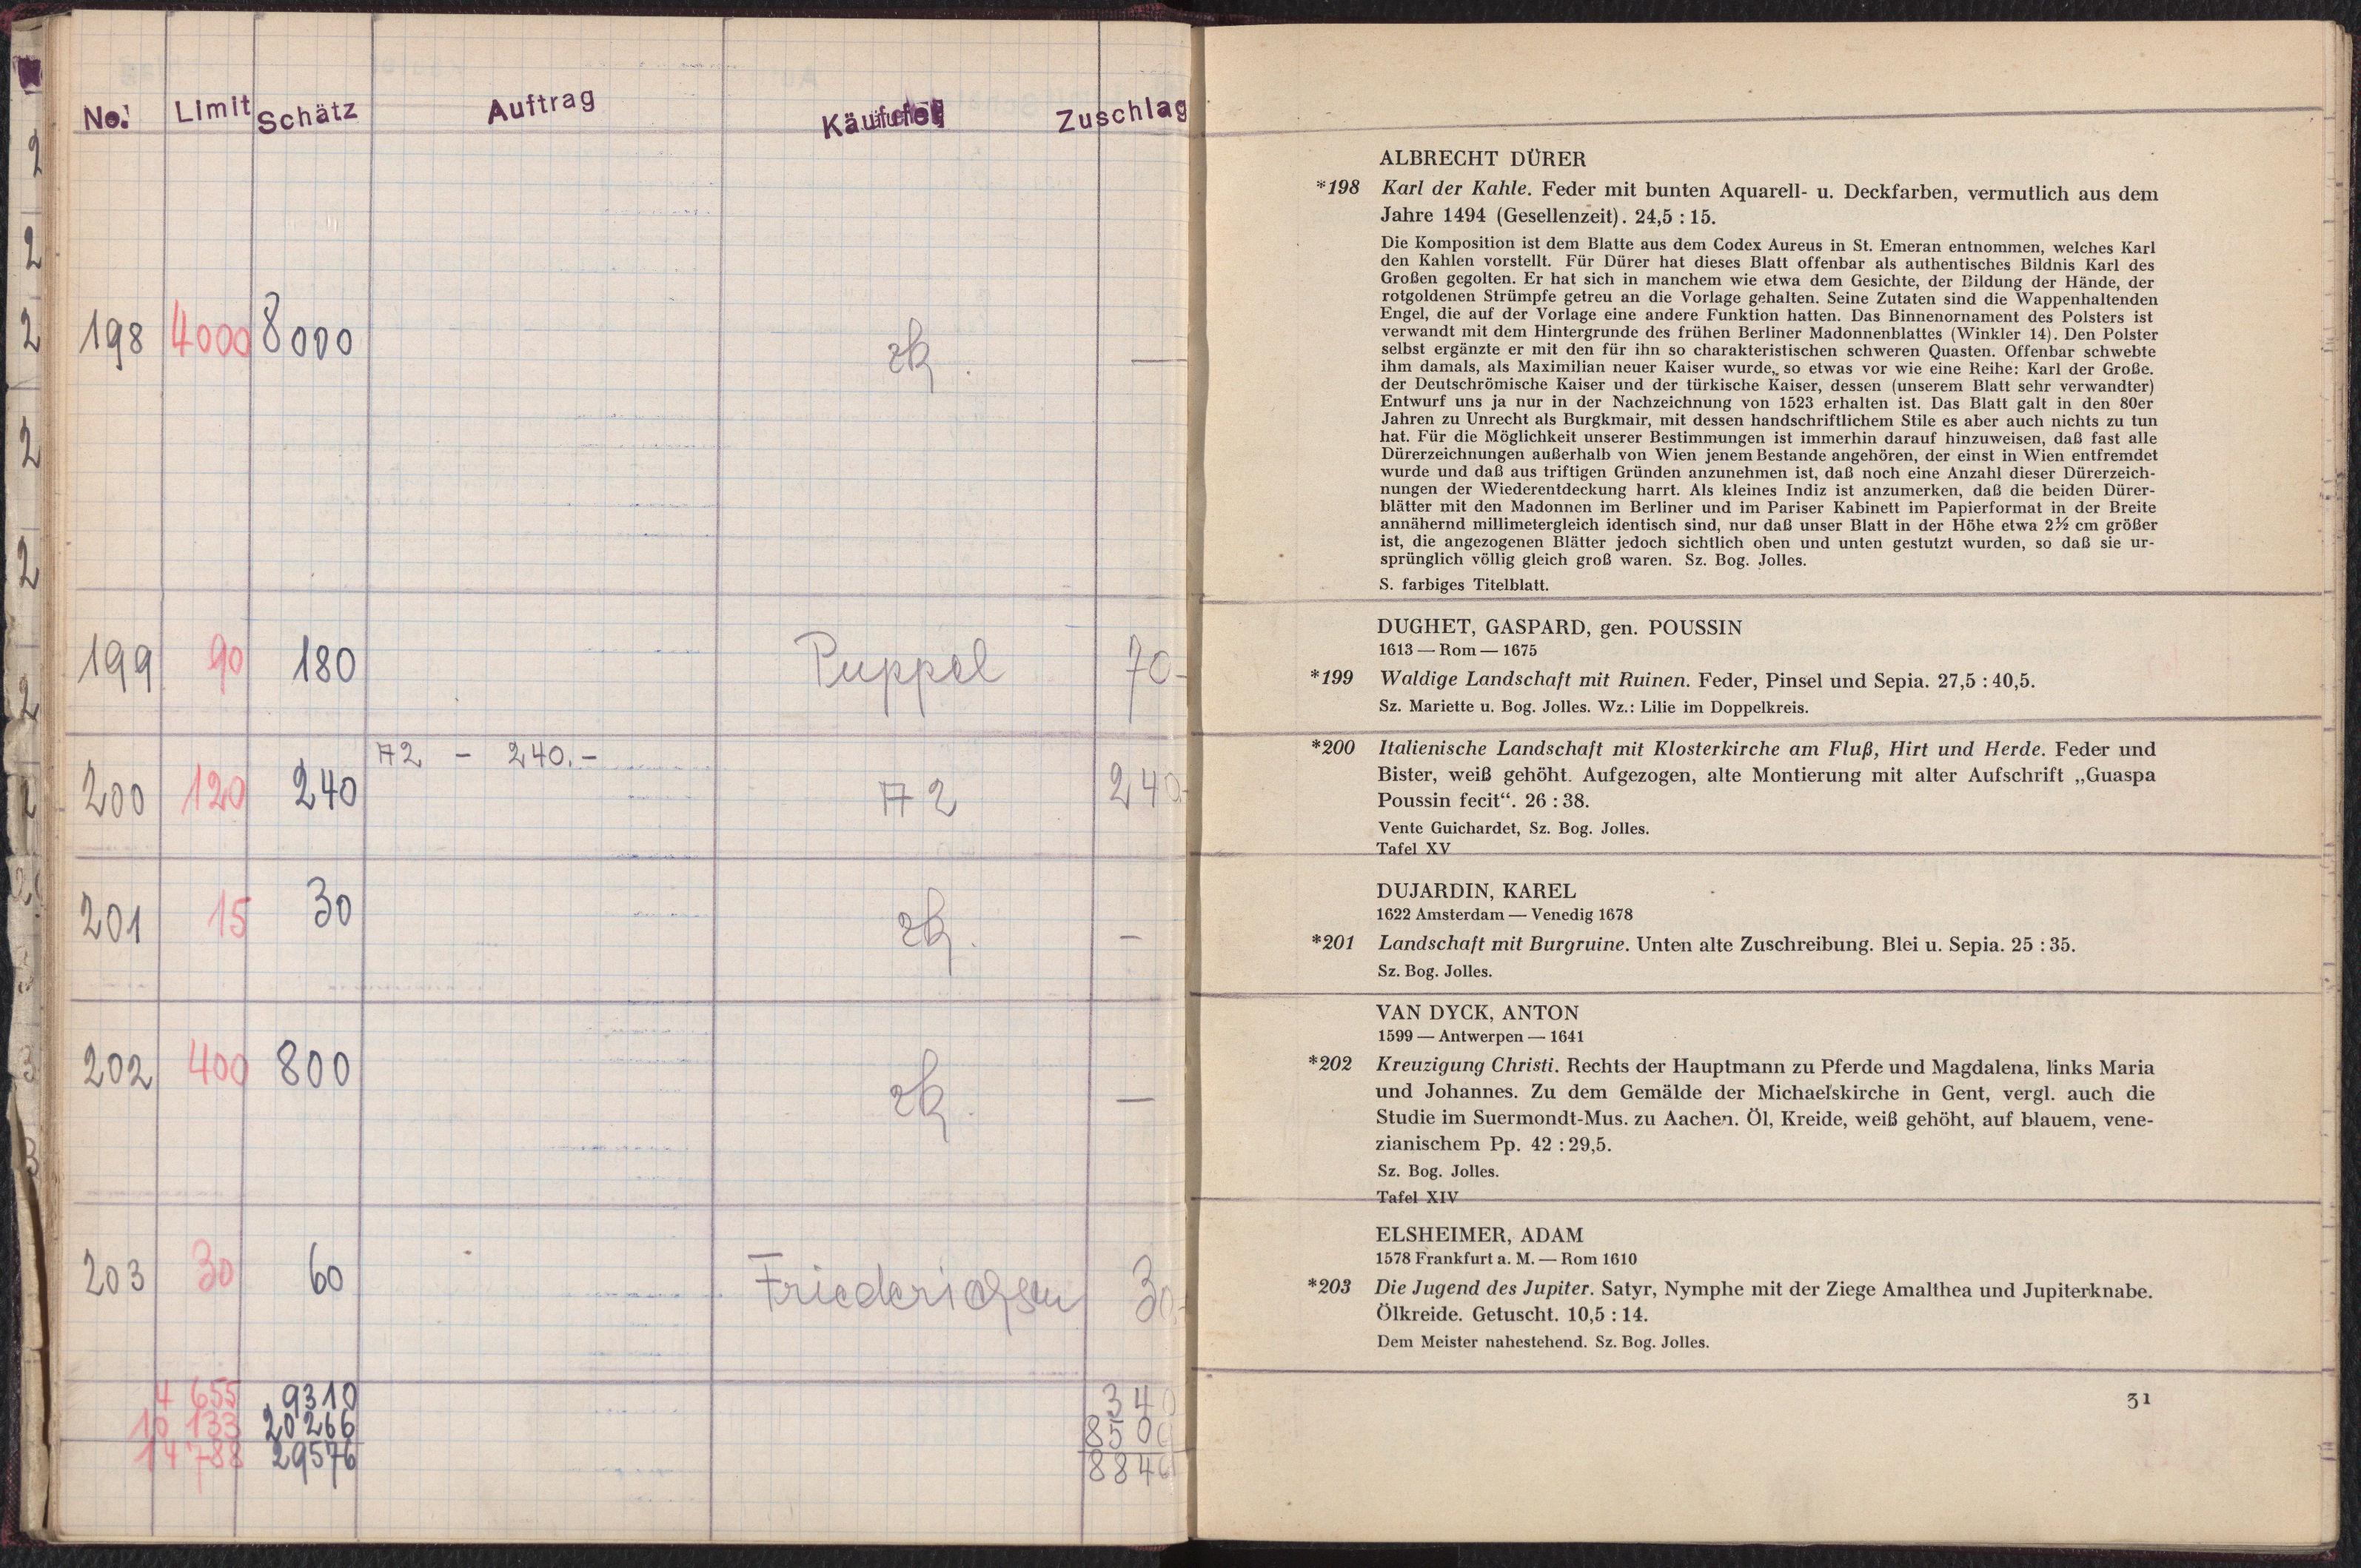 No. Limit Schätz Auftrag Käufer Zuschlag
198 4000 8000 zk. —
199 90 180 Puppel 70.-
A2 - 240.-
200 120 240 A2 240.-
201 15 30 zk. –
202 400 800 zk. —
203 30 60 Friederichsen 30.-
4 655 9310 340
10 133 20266
14 788 29576
ALBRECHT DÜRER
*198 Karl der Kahle. Feder mit bunten Aquarell- u. Deckfarben, vermutlich aus dem
Jahre 1494 (Gesellenzeit). 24,5 : 15.
Die Komposition ist dem Blatte aus dem Codex Aureus in St. Emeran entnommen, welches Karl
den Kahlen vorstellt. Für Dürer hat dieses Blatt offenbar als authentisches Bildnis Karl des
Großen gegolten. Er hat sich in manchem wie etwa dem Gesichte, der Bildung der Hände, der
rotgoldenen Strümpfe getreu an die Vorlage gehalten. Seine Zutaten sind die Wappenhaltenden
Engel, die auf der Vorlage eine andere Funktion hatten. Das Binnenornament des Polsters ist
verwandt mit dem Hintergrunde des frühen Berliner Madonnenblattes (Winkler 14). Den Polster
selbst ergänzte er mit den für ihn so charakteristischen schweren Quasten. Offenbar schwebte
ihm damals, als Maximilian neuer Kaiser wurde, so etwas vor wie eine Reihe: Karl der Große.
der Deutschrömische Kaiser und der türkische Kaiser, dessen (unserem Blatt sehr verwandter)
Entwurf uns ja nur in der Nachzeichnung von 1523 erhalten ist. Das Blatt galt in den 80er
Jahren zu Unrecht als Burgkmair, mit dessen handschriftlichem Stile es aber auch nichts zu tun
hat. Für die Möglichkeit unserer Bestimmungen ist immerhin darauf hinzuweisen, daß fast alle
Dürerzeichnungen außerhalb von Wien jenem Bestande angehören, der einst in Wien entfremdet
wurde und daß aus triftigen Gründen anzunehmen ist, daß noch eine Anzahl dieser Dürerzeich-
nungen der Wiederentdeckung harrt. Als kleines Indiz ist anzumerken, daß die beiden Dürer-
blätter mit den Madonnen im Berliner und im Pariser Kabinett im Papierformat in der Breite
annähernd millimetergleich identisch sind, nur daß unser Blatt in der Höhe etwa 2½ cm größer
ist, die angezogenen Blätter jedoch sichtlich oben und unten gestutzt wurden, so daß sie ur-
sprünglich völlig gleich groß waren. Sz. Bog. Jolles.
S. farbiges Titelblatt.
DUGHET, GASPARD, gen. POUSSIN
1613 — Rom — 1675
*199 Waldige Landschaft mit Ruinen. Feder, Pinsel und Sepia. 27,5 : 40,5.
Sz. Mariette u. Bog. Jolles. Wz.: Lilie im Doppelkreis.
*200 Italienische Landschaft mit Klosterkirche am Fluß, Hirt und Herde. Feder und
Bister, weiß gehöht. Aufgezogen, alte Montierung mit alter Aufschrift „Guaspa
Poussin fecit“. 26 : 38.
Vente Guichardet, Sz. Bog. Jolles.
Tafel XV
DUJARDIN, KAREL
1622 Amsterdam — Venedig 1678
*201 Landschaft mit Burgruine. Unten alte Zuschreibung. Blei u. Sepia. 25 : 35.
Sz. Bog. Jolles.
VAN DYCK, ANTON
1599 — Antwerpen — 1641
*202 Kreuzigung Christi. Rechts der Hauptmann zu Pferde und Magdalena, links Maria
und Johannes. Zu dem Gemälde der Michaelskirche in Gent, vergl. auch die
Studie im Suermondt-Mus. zu Aachen. Öl, Kreide, weiß gehöht, auf blauem, vene-
zianischem Pp. 42 : 29,5.
Sz. Bog. Jolles.
Tafel XIV
ELSHEIMER, ADAM
1578 Frankfurt a. M. — Rom 1610
*203 Die Jugend des Jupiter. Satyr, Nymphe mit der Ziege Amalthea und Jupiterknabe.
Ölkreide. Getuscht. 10,5 : 14.
Dem Meister nahestehend. Sz. Bog. Jolles.
31